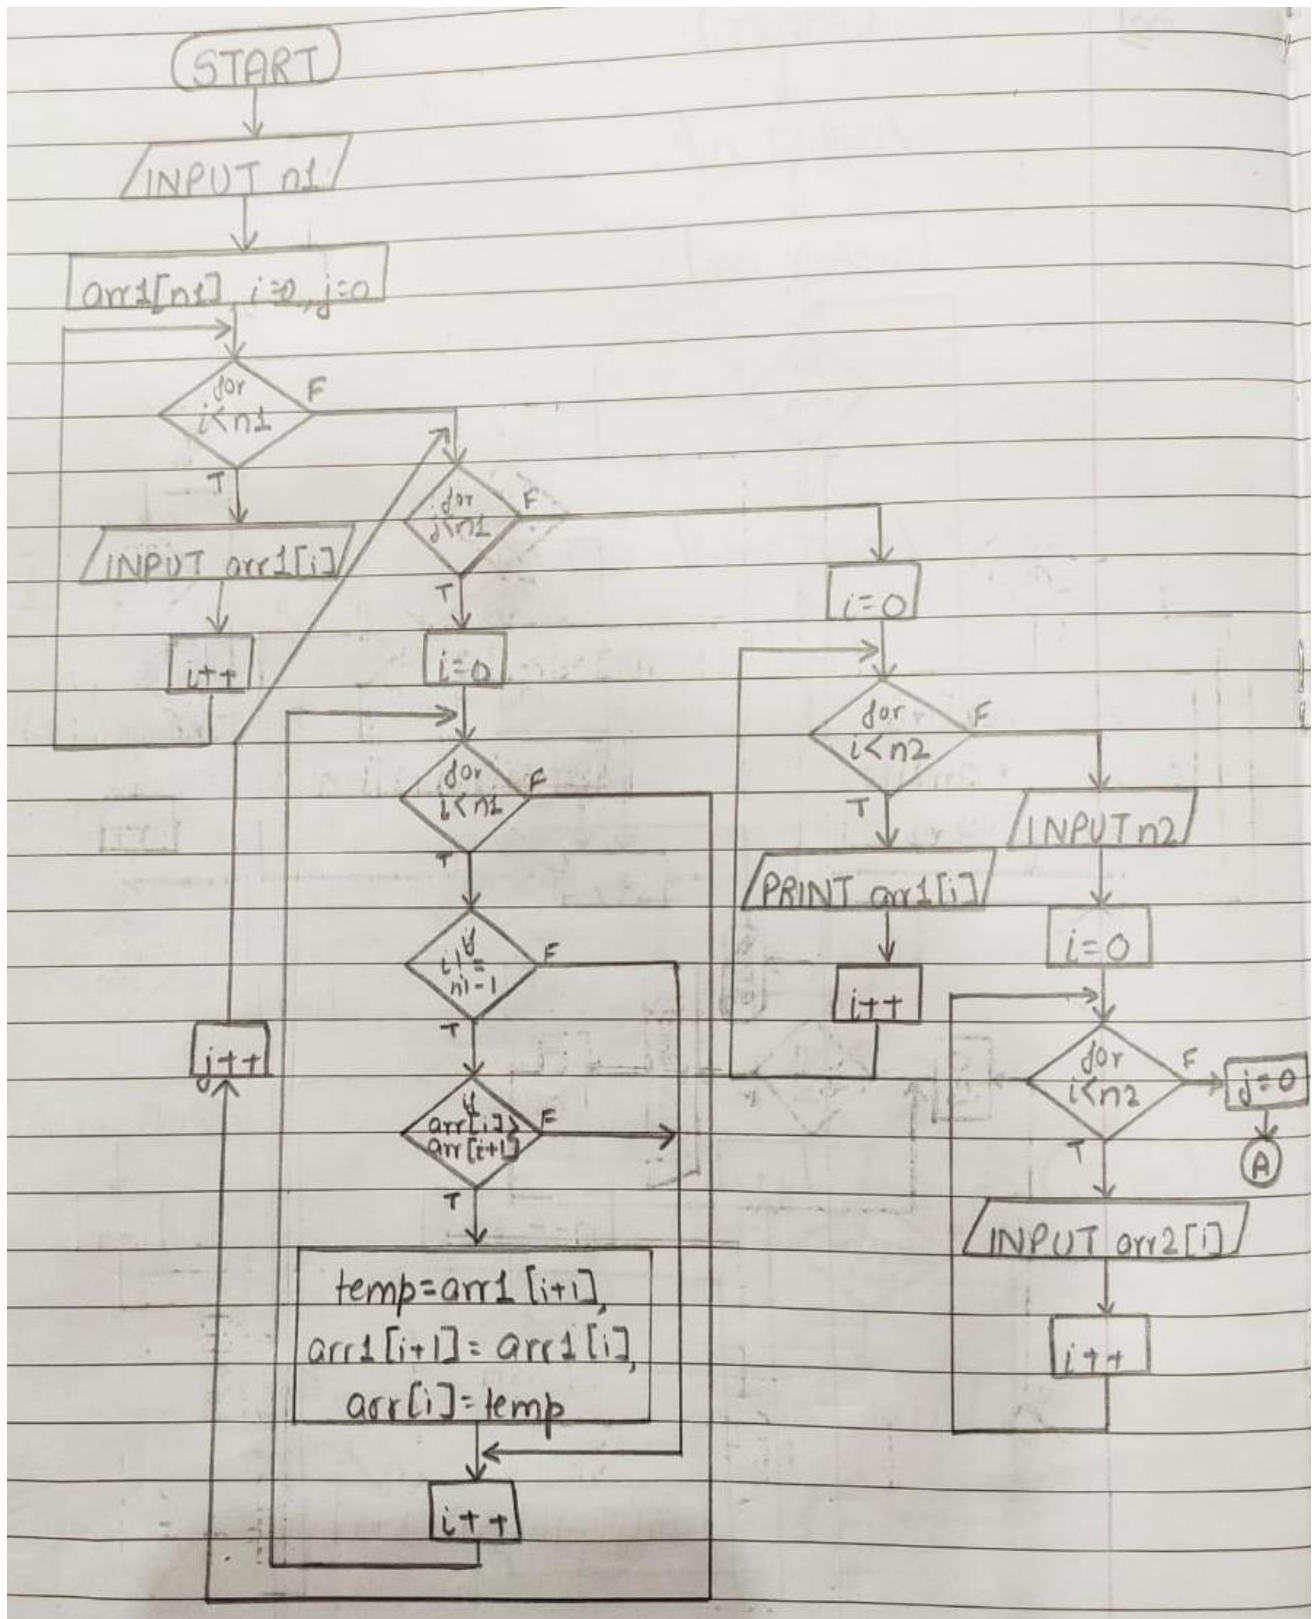 START
INPUT n1
arr1[n1], i=0, j=0
for
i<n1
F
T
INPUT arr1[i]
i++
for
j<n1
F
T
i=0
for
i<n1
F
T
if
i!=
n1-1
F
T
if
arr[i]>
arr[i+1]
F
T
temp=arr1[i+1],
arr1[i+1]=arr1[i],
arr[i]=temp
i++
j++
i=0
for
i<n2
F
T
PRINT arr1[i]
i++
INPUT n2
i=0
for
i<n2
F
T
INPUT arr2[i]
i++
j=0
A